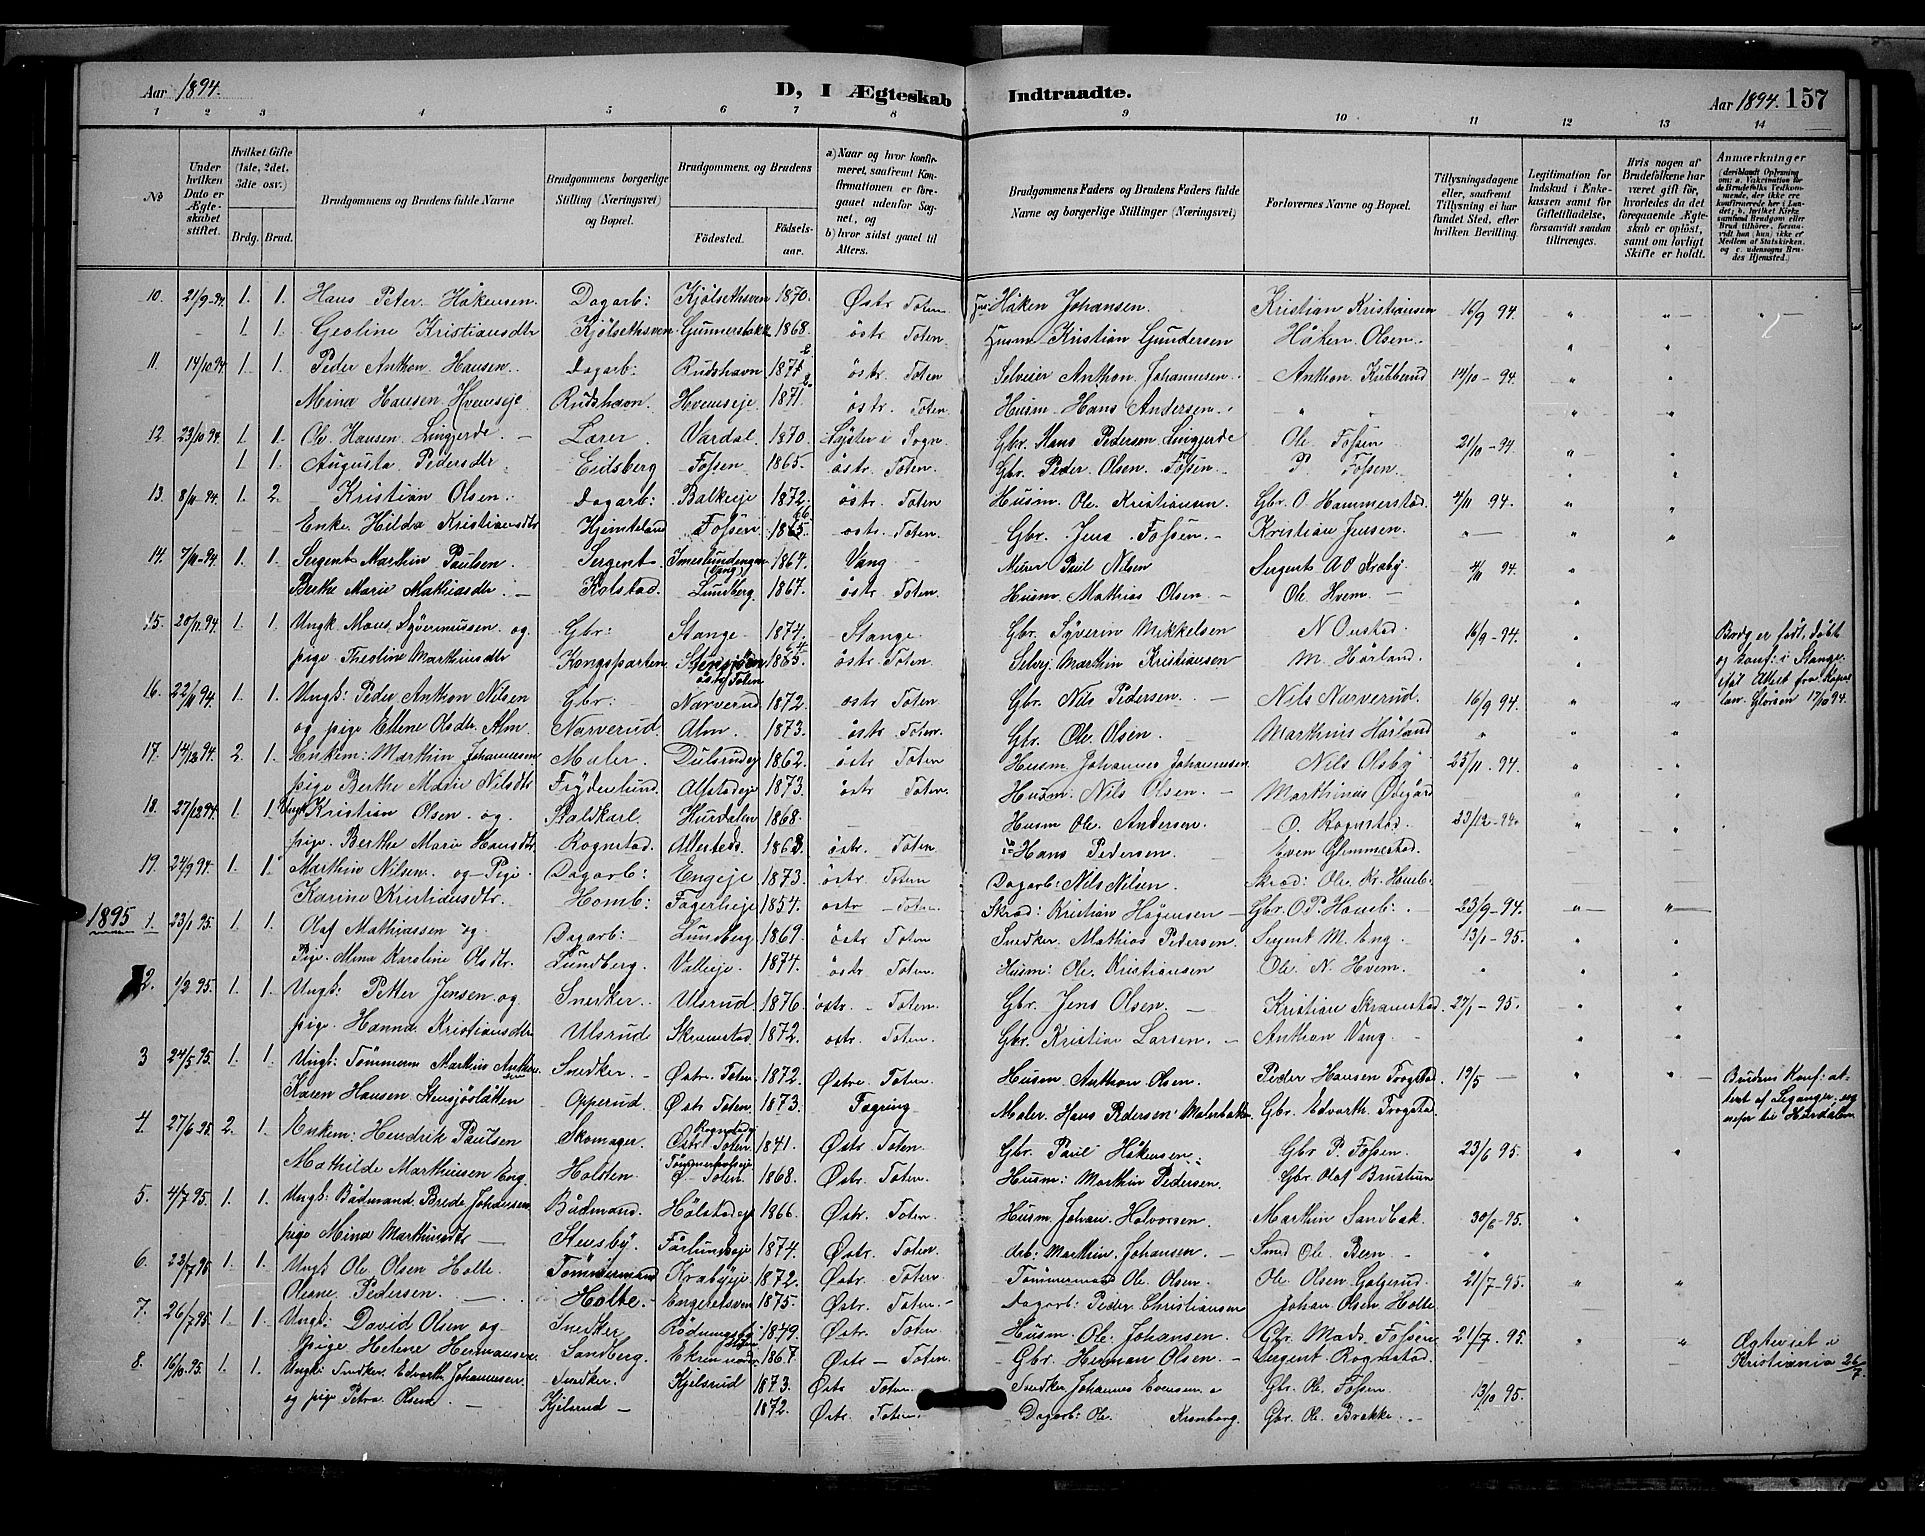 Aar 1894.
D, I Ægteskab Indtraadte.
Aar 1894. 157
1 2 3 4 5 6 7 8 9 10 11 12 13 14
No
Under hvilken Dato er Ægteskabet stiftet.
Hvilket Gifte (1ste, 2det, 3die osv.)
Brdg. Brud.
Brudgommens og Brudens fulde Navne
Brudgommens borgerlige Stilling (Næringsvei) og Bopæl.
Brudgommens og Brudens
Födested.
Födselsaar.
a) Naar og hvor konfirmeret, saafremt Konfirmationen er foregaaet udenfor Sognet, og
b) hvor sidst gaaet til Alters.
Brudgommens Faders og Brudens Faders fulde Navne og borgerlige Stillinger (Næringsvei)
Forlovernes Navne og Bopæl.
Tillysningsdagene eller, saafremt Tillysning ei har fundet Sted, efter hvilken Bevilling.
Legitimation for Indskud i Enkekassen samt for Giftetilladelse, forsaavidt saadan tiltrænges.
Hvis nogen af Brudefolkene har været gift för, hvorledes da det foregaaende Ægteskab er oplöst, samt om lovligt Skifte er holdt.
Anmærkninger
10. 21/9-94 1. 1. Hans Peter Håkensen. Dagarb: Kjölsethsven 1870. Østr Toten Håken Johansen. Kristian Kristiansen 16/9 94.
1. 1. Geoline Kristiansdtr Kjölsethsven Gunnerstakk 1868. östr. Toten. Husm Kristian Gundersen Håken Olsen.
11. 14/10 94. 1. 1. Peder Anthon Hansen. Dagarb: Rudshavn 1871 östr. Toten Selveier Anthon Johannesen. Anthon Kubberud 14/10-94.
Mina Hansen Hvemseje Rudshavn. Hvemseje 1871. östr. Toten. Husm. Hans Andersen.
12. 23/10 94. 1. 1. Ole Hansen Lingjerde. Lærer. Vardal. 1870. Lyster i Sogn Gbr. Hans Pedersen Lingjerde Ole Fossen 21/10-94
1. 1. Augusta Pedersdtr Eidsberg Fossen 1865. östr. Toten. Gbr. Peder Olsen Fossen P. Fossen.
13. 8/11 94. 1. 2. Kristian Olsen. Dagarb: Balkeje 1872. östr. Toten Husm. Ole Kristiansen. Gbr. O. Hammerstad. 4/11 94.
Enke Hilda Kristiansdtr Hjemtsland Fossen. 1865. östr. Toten. Gbr. Jens Fossen. Kristian Jensen.
14. 7/11-94. 1. 1. Sergent Marthin Paulsen. Sergent. (Vang) 1864. Vang Murer Paul Nilsen Sergent A O Kraby 4/11 94.
Berthe Marie Mathiasdtr. Kolstad. Lundberg. 1867. östr. Toten. Husm. Mathias Olsen Ole Hvem.
15. 20/11 94. 1. 1. Ungk Mons Syvermussen og Gbr: Stange 1874. Stange Gbr. Syverin Mikkelsen N Onstad. 16/9-94. Brdg er föt, döbt
pige Theoline Marthinsdtr Kongsparten östr Toten 1885. östr. Toten. Selvej Marthin Kristiansen M. Hårland. og konf: i Stange.
16. 22/11 94. 1. 1. Ungk: Peder Anthon Nilsen Gbr: Narverud 1872. östr Toten Gbr. Nils Pedersen. Nils Narverud. 16/9 94. Att Attest fra Kapellan Glörsen 17/10 94.
og pige Ellene Olsdtr Alm Narverud. Alm 1873. östr. Toten. Gbr. Ole Olsen. Marthinus Hårland
17. 14/12 94. 2. 1. Enkem: Marthin Johannesen Maler. Dulsrudej 1862. östr. Toten Husm Johannes Johannesen Nils Olsby 25/11. 94.
pige Berthe Marie Nilsdtr Fröydenlund. Alfstadeje 1873. östr Toten. Husm: Nils Olsen. Marthinus Ödegård
18. 27/12 94. 1. 1. Ungk Kristian Olsen og Staldkarl Hurdalen 1868. Husm Ole Andersen. O. Rognstad. 23/12-94.
pige. Berthe Marie Hansdtr Rognstad. 1868. östr. Toten Hans Pedersen. Even Glemmestad.
19. 24/9 94. 1. 1. Marthin Nilsen og Pige Dagarb: Engeje 1873. östr Toten Dagarb: Nils Nilsen Skræd: Ole Kr. Homb:
Karine Kristiansdtr. Homb: Fagerlieje 1854. östr. Toten. Skræd: Kristian Hågensen Gbr. O P. Homb: 23/9-94.
1895 1. 23/1 95. 1. 1. Olaf Mathiassen og Dagarb: Lundberg. 1869. östr. Toten Snedker. Mathias Pedersen. Sergent M. Eng. 13/1-95.
Pige. Mina Karoline Olsdtr. Lundberg. Valleeje. 1874. östr. Toten. Husm: Ole Kristiansen Ole N. Hvem.
2. 1/2 95. 1. 1. Ungk: Petter Jensen og Snedker. Ulsrud 1876. östr. Toten. Gbr. Jens Olsen Kristian Skramstad. 27/1-95.
pige. Hanna Kristiansdtr Ulsrud Skramstad. 1872. östr. Toten. Gbr Kristian Larsen. Anthon Vang
3 24/5 95. 1. 1. Ungk: Tömmerm Marthin Anthonsen Snedker. Østr. Toten. 1872. Østre Toten. Husm Anthon Olsen. Peder Hansen Frogstad. 19/5 Brudens Konf: at-
Karen Hansen Stensjöslåtten Opperud. Østr Toten. 1873. Fagring Maler. Hans Pedersen Malerbakk Gbr. Edvarth Frogstad. test af Leganger,
4. 27/6 95. 2. 1. Enkem: Hendrik Paulsen Skomager. Rognstadej Østr Toten 1841. Østr. Toten Gbr. Paul Håkensen. Gbr P. Fossen. 23/6 95.
Mathilde Marthinsen Eng. Holsten. Ø Toten. 1868. Østr. Toten. Husm: Marthin Pedersen. Gbr Olaf Brustuen
5. 4/7 95. 1. 1. Ungk: Bådmand Brede Johansen Bådmand. Hölstadeje 1866. Østr. Toten. Husm Johan Halvorsen. Marthin Sandbak. 30/6-95.
pige Mina Marthinsdtr Stensby. Förlundseje 1874. Østr. Toten. Marthin Johansen. Smed Ole Been.
6. 23/7 95. 1. 1. Ungk Ole Olsen Holte. Tömmermand Krabyeje 1872. Østr. Toten. Tömmermand Ole Olsen. Ole Olsen Galgerud. 21/7-95.
Oleane Pedersen. Holte. Engeretsven 1875. Østr. Toten. Dagarb: Peder Christiansen Johan Olsen Holte.
7. 26/7 95. 1. 1. Ungk: David Olsen og Snedker 1849. Østr. Toten. Husm. Ole Johansen. Gbr. Mads Fossen. 21/7. 95. Ægteviet i
pige Helene Hermansen. Sandberg. Ekren 1867. Østr Toten. Gbr. Herman Olsen. Sergent Rognstad. Kristiania 26/7.
8. 16/10 95. 1. 1. Ungk: Snedker Edvarth Johannesen Snedker. Kjelsrud 1873. Østr Toten. Snedker Johannes Evensen Gbr. Ole Fossen 13/10 95.
og pige Petra Olsen. Kjelsrud 1872. Østr. Toten. Dagarb: Ole Kronborg. Gbr. Ole Brekke.